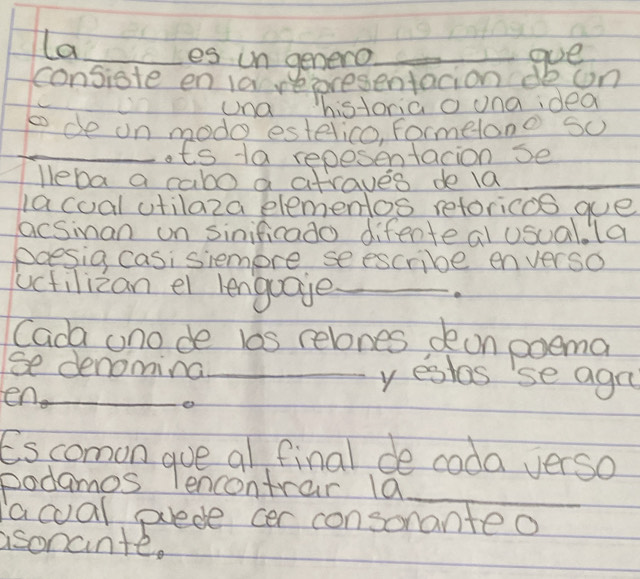 la ______ es un genero ______ que
consiste en la representacion de un
una historia o una idea
de un modo estetico, Formelano su
______. Es la repesentacion se
lleba a cabo a através de la ______
la cual utilaza elementos retoricos que
acsinan un sinificado difente al usual. la
poesia, casi siempre se escribe en verso
uctilizan el lenguaje ______.
Cada uno de los relones de un poema
se denomina ______ y éstos se agru
en. ______.
Es comun que al final de cada verso
podamos encontrar la ______
la cual puede cer consonante o
asonante.